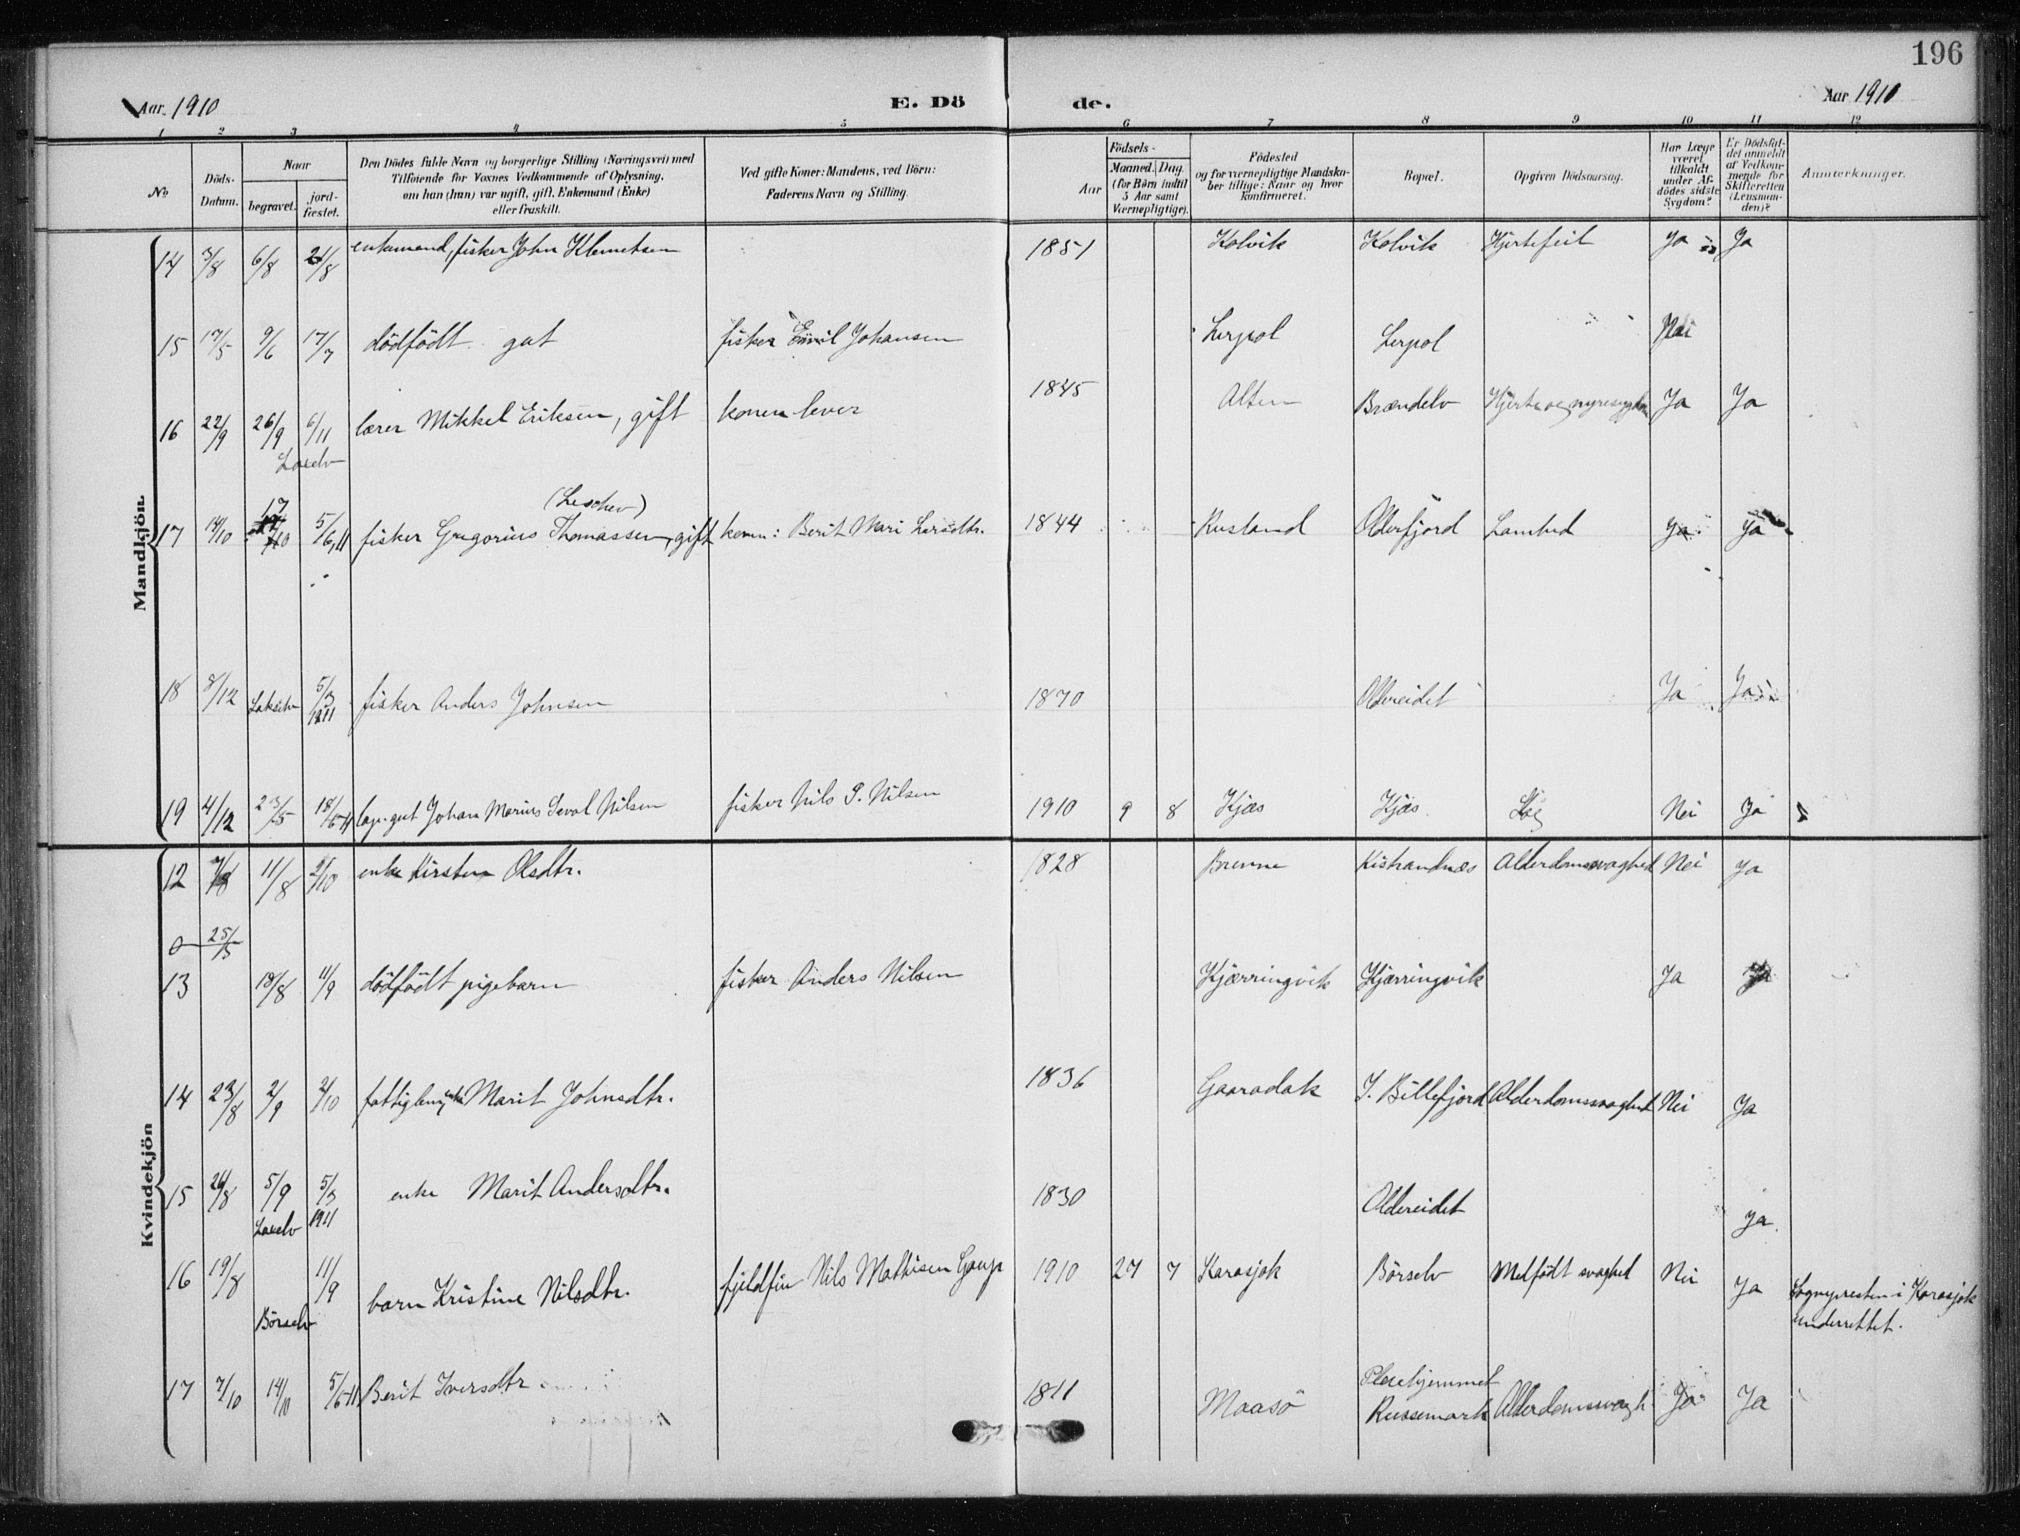 196
Aar 1910 E. Dö de. Aar 1910
1 2 3 4 5 6 7 8 9 10 11 12
No
Döds-Datum.
Naar
begravet.
jord-fæstet.
Den Dödes fulde Navn og borgerlige Stilling (Næringsvei) med
Tilföiende for Voxnes Vedkommende af Oplysning,
om han (hun) var ugift, gift, Enkemand (Enke)
eller fraskilt.
Ved gifte Koner: Mandens, ved Börn:
Faderens Navn og Stilling.
Födsels-
Aar
Maaned. Dag.
(for Börn indtil
5 Aar samt
Værnepligtige).
Födested
og for værnepligtige Mandska-
ber tillige: Naar og hvor
konfirmeret.
Bopæl.
Opgiven Dödsaarsag.
Har Læge
været
tilkaldt
under Af-
dödes sidste
Sygdom?
Er Dödsfal-
det anmeldt
af Vedkom-
mende for
Skifteretten
(Lensman-
den)?
Anmærkninger.
Mandkjön
14 3/8 6/8 21/8 enkemand, fisker John Klemetsen 1851 Kolvik Kolvik Hjertefeil Ja Ja
15 17/5 9/6 17/7 dödfödt gut fisker Emil Johansen Lerpol Lerpol Nei
16 22/9 26/9 6/11 lærer Mikkel Eriksen, gift konen lever 1845 Alten Brændelv Hjerte og nyresygdom Ja Ja
Laxelv
(Leschev)
17 14/10 17/10 5/6,11 fisker Gregorius Thomassen, gift konen: Berit Mari Larsdtr. 1844 Rusland Olderfjord Lamhed Ja Ja
18 8/12 Lakselv 5/3 1911 fisker Anders Johnsen 1870 Oldereidet Ja Ja
19 4/12 23/5 18/5-11 Johan Marius Sevol Nilsen fisker Nils P. Nilsen 1910 9 8 Kjæs Kjæs Nei Ja
Kvindekjön
12 7/8 11/8 2/10 enke Kirsten Olsdtr. 1828 Brenne Kistrandnæs Alderdomssvaghed Nei Ja
0 25/5
13 18/8 11/9 dödfödt pigebarn fisker Anders Nilsen Kjærringvik Kjærringvik Ja Ja
14 23/8 2/9 2/10 fattiglem, enke Marit Johnsdtr. 1836 Gaaradak I. Billefjord Alderdomssvaghed Nei Ja
15 26/8 5/9 5/3 1911 enke Marit Andersdtr. 1830 Oldereidet Ja.
Laxelv
16 19/8 11/9 barn Kristine Nilsdtr. fjeldfin Nils Mathisen Gaup 1910 27 7 Karasjok Börselv Medfödt svaghed Nei Ja Sognepresten i Karasjok
Börselv underrettet.
17 7/10 14/10 5/6-11 Berit Iversdtr 1811 Maasö Pleiehjemmet
Russemark Alderdomssvagh. Ja Ja